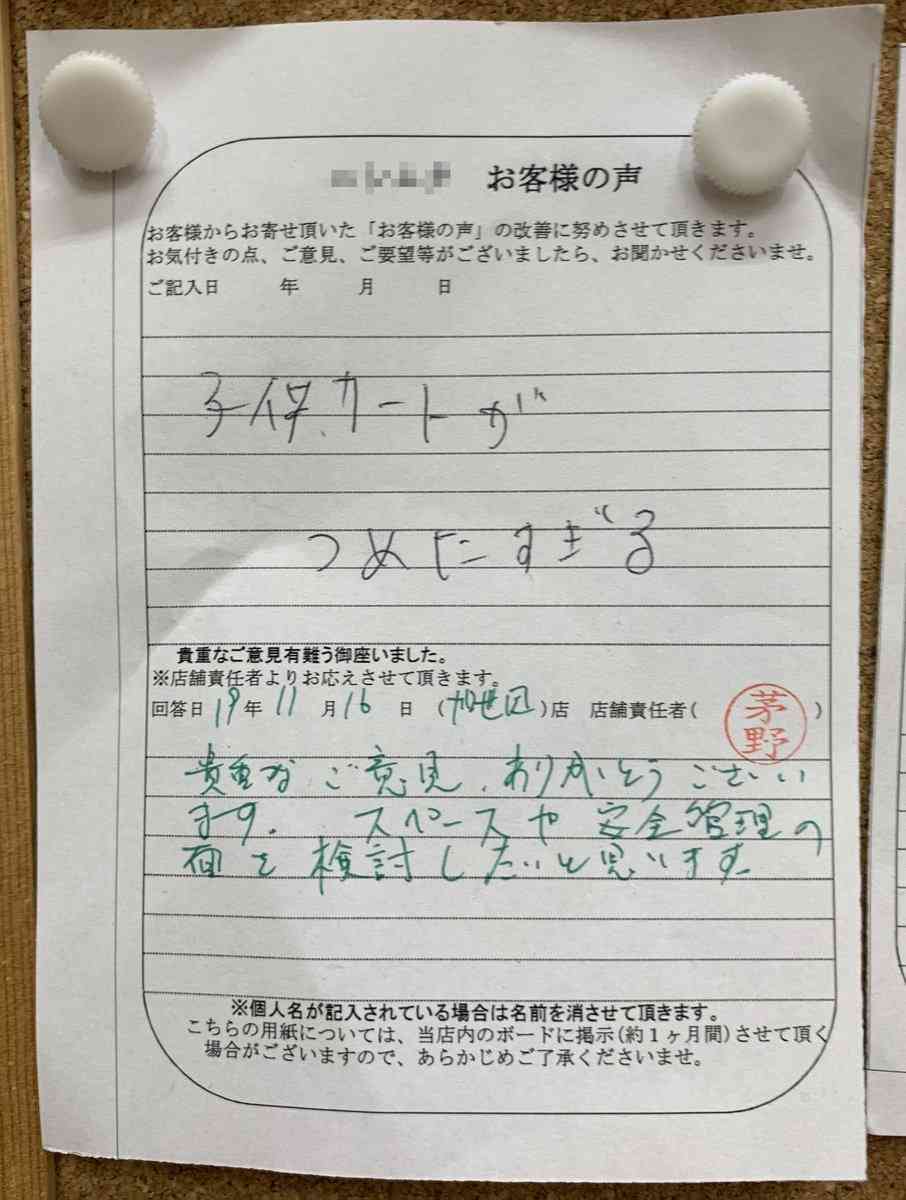 お客様の声
お客様からお寄せ頂いた「お客様の声」の改善に努めさせて頂きます。
お気付きの点、ご意見、ご要望等がございましたら、お聞かせくださいませ。
ご記入日 年 月 日
子供カートが
つめたすぎる
貴重なご意見有難う御座いました。
※店舗責任者よりお応えさせて頂きます。
回答日 19年 11月16日 (加世田)店 店舗責任者(茅野)
貴重なご意見、ありがとうござい
ます。 スペースや安全管理の
面を検討したいと思います。
※個人名が記入されている場合は名前を消させて頂きます。
こちらの用紙については、当店内のボードに掲示(約１ヶ月間)させて頂く
場合がございますので、あらかじめご了承くださいませ。